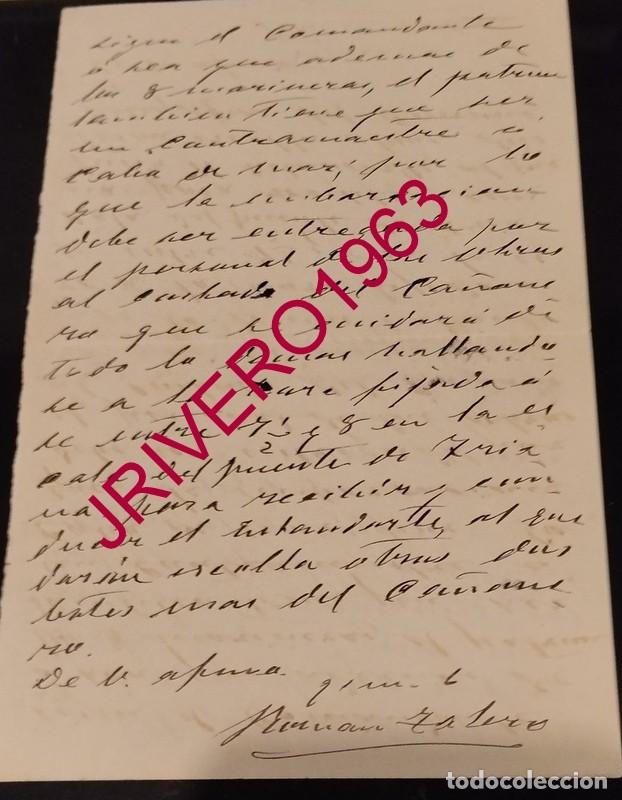 sigun el Comandante
o sea que ademas de
los 8 marineros, el patron
tambien tiene que ser
un Contramaestre o
Cabo de mar, por lo
que la embarcacion
debe ser entregada por
el personal de las obras
al costado del Cañone
ro que se cuidará de
todo lo demas hallando
se a la hora fijada ó
se entre 7½ y 8 en la es
cala del puente de Tria
na para recibir y con
ducir el Estandarte, al que
darán escolta otros dos
botes mas del Cañone
ro.
De V. afmo. q.s.m. b
Roman Talero
JRIVERO1963
todocoleccion